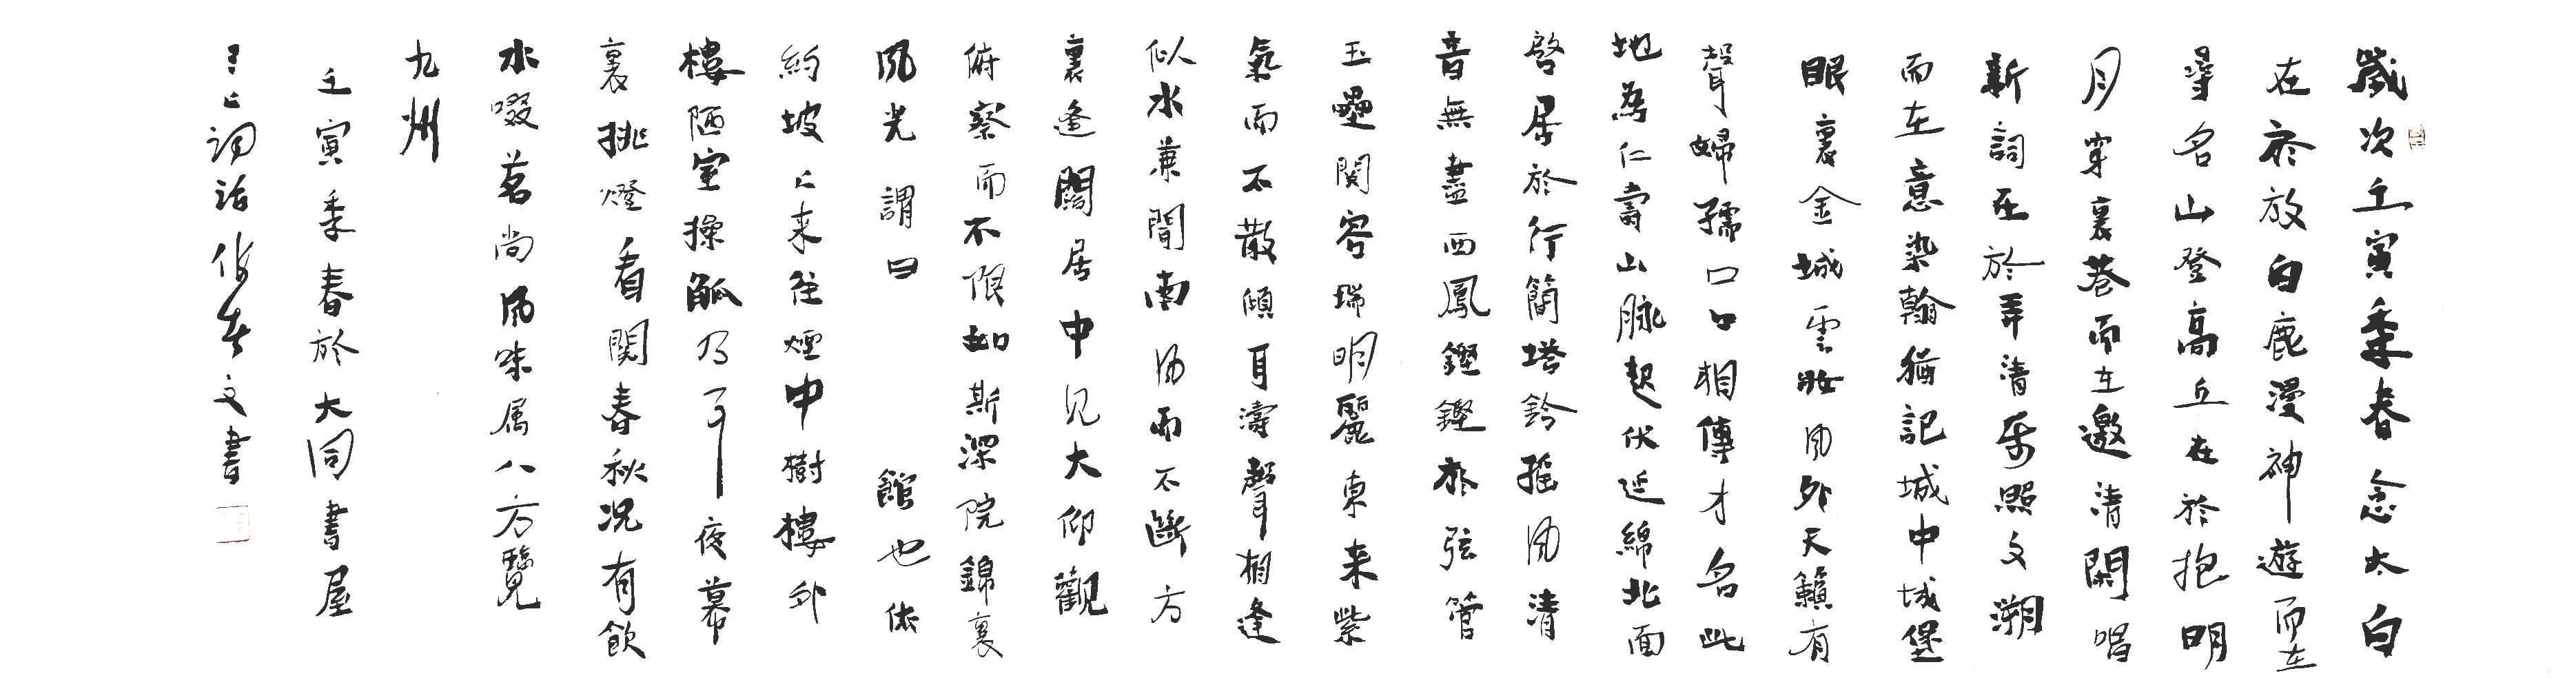 歲次壬寅季春念太白
在於放白鹿漫神遊而在
尋名山登高丘在於抱明
月穿裏巷而在邀清閑唱
新詞在於弄清樂照文溯
而在意染翰猶記城中城堡
眼裏金城雲妝風外天籟有
聲婦孺口口相傳才名此
地為仁壽山脉起伏延綿北面
啓居於行簡塔鈴搖風清
音無盡西鳳鏗鏗於弦管
玉壘関容瑞明麗東来紫
氣而不散傾耳濤聲相逢
似水兼聞南風而不斷方
裏逢闊居中見大仰觀
俯察而不限如斯深院錦裏
風光謂曰 館也依
約坡上来往煙中樹樓外
樓陋室操觚乃了夜幕
裏挑燈看関春秋況有飲
水啜茗尚風味属八方覽
九州
壬寅季春於大同書屋
詞話 文書